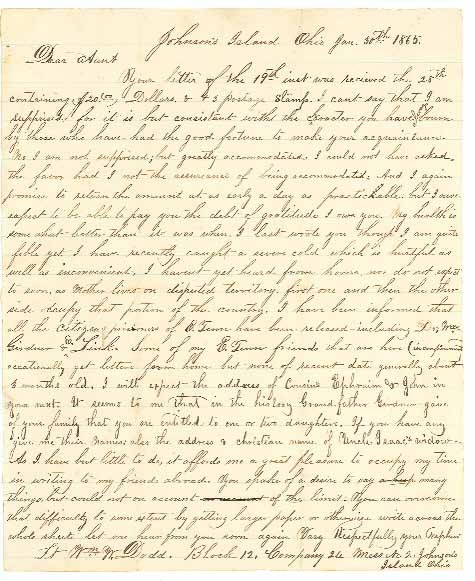 Johnson's Island Ohio Jan. 30th 1865.
Dear Aunt
Your letter of the 19th inst was recieved the 28th
containing $20.00, Dollars. & 43 postage Stamp. I cant say that I am
surprised for it is but consistent with the you have
by those who have had the good fortune to make your acquaintance.
No I am not supprised; but greatly accommodated. I could not have asked
the favor had I not the assurance of being accommodated. And I again
promise to return the amount at as early a day as practicable. but I never
expect to be able to pay you the debt of gratitude I owe you. My health is
some what better than it was when I last wrote you though I am quite
feble yet I have recently caught a severe cold which is hurtful as
well as inconvenient. I havent yet heard from home, nor do not expect
to soon, as Mother lives on disputed territory, first one and then the other
side occupy that portion of the country. I have been informed that
all the Citizen prisoners of E. Tenn have been released including Dr. Wm
Girdner & E. Link. Some of my E. Tenn friends that are her
occationally get letters form home but none of recent date generally about
months old. I will expect the address of Cousins Ephraim & John in
your next. It seems to me that in the history Grandfather Girdner gave
of your family that you are entitled to one or two daughters. If you have any
give me their names also the address & christian name of Uncle Isaac's widow.
As I have but little to do, it affords me a great pleasure to occupy my time
in writing to my friends abroad. You spoke of a desire to say a heap many
things but could not on account of the limit. You can overcome
that difficulty to some extent by getting larger paper or write across the
whole sheet. let me hear from you soon again Very Respectfully, your Nephew
Lt Wm W. Dodd. Block 12, Company 24 Mess N. 2. Johnson's
Island Ohio